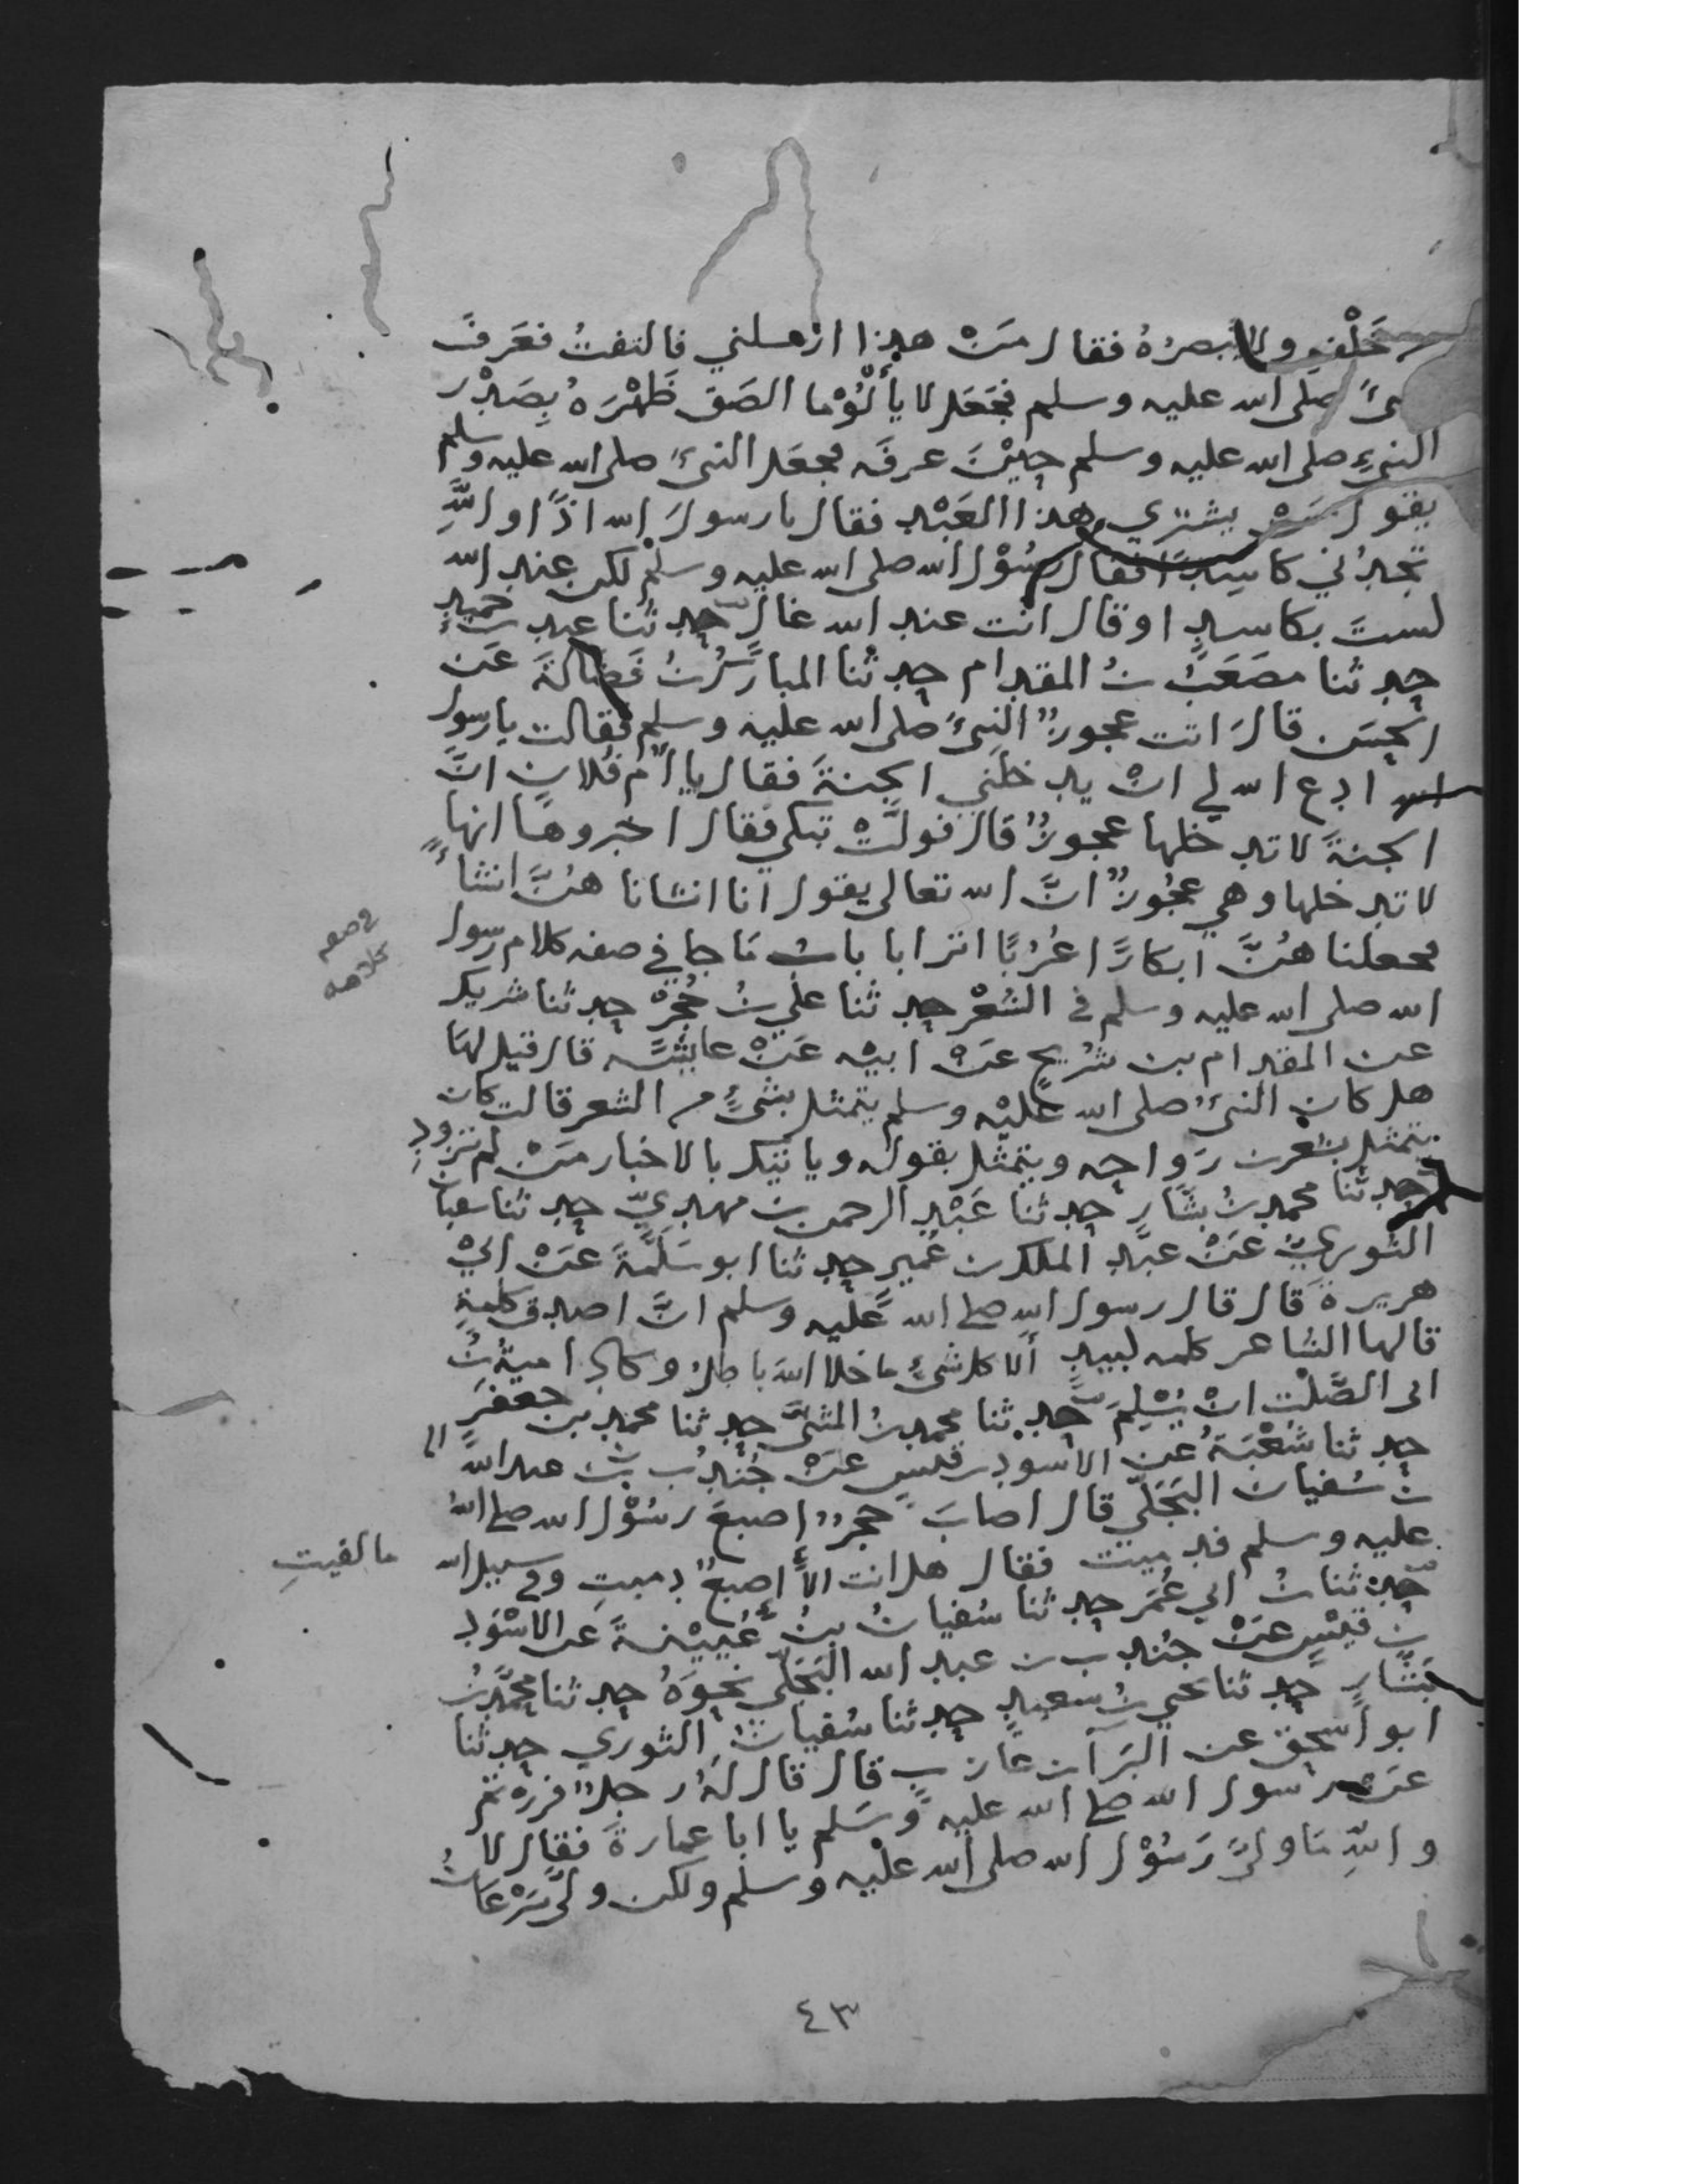 خَلْفه ولا يبصرُهُ فقال مَنْ هذا ارسلني فالتفتُ فعَرفَ
صلى الله عليه وسلم فجَعَل لا يألُوْ ما الصَقَ ظَهْرَهُ بِصَدْر
النبيّ صلى الله عليه وسلم حِيْنَ عرفَه فجعَل النبيُّ صلى الله عليه وسلم
يقول مَنْ يشتري هذا العَبْد فقال يا رسولَ الله اذًا والله
تجدُني كاسِدًا فقال رسُوْل الله صلى الله عليه وسلم لكن عند الله
لستَ بكاسدٍ او قال انت عند الله غالٍ حدثنا عبد بن حميدٍ
حدثنا مصعَبُ بنُ المقدام حدثنا المباركُ بنُ فَضالةَ عَن
الحسَن قالَ اتت عجوزٌ النبيَّ صلى الله عليه وسلم فقالت يا رسول
الله ادع الله لي انْ يدخلَني الجنةَ فقال يا اُمّ فُلانٍ انَّ
الجنةَ لا تدخلها عجوزٌ قال فولَّتْ تبكي فقال اخبروها انها
لا تدخلها وهي عجُوزٌ انَّ الله تعالى يقول انا انشانا هنَّ انشاءً
فجعلنا هُنَّ ابكارًا عُرُبًا اترابا بابُ مَا جا في صفه كلام رسول
الله صلى الله عليه وسلم في الشعْر حدثنا علي بنُ حُجْرٍ حدثنا شريك
عن المقدام بن شُريحٍ عَنْ ابيْه عَنْ عايشَه قال قيل لهَا
هل كان النبيُّ صلى الله عليْه وسلم يتمثل بشيءٍ من الشعر قالت كان
يتمثل بشعْر بن رَواحه ويتمثل بقوله ويا تيك بالاخبار مَنْ لم تزودِ
حدثنا محمد بنُ بشَّارٍ حدثنا عَبْد الرحمن بن مهديّ حدثنا سفيان
الثوريُّ عَنْ عبد الملك بن عُميرٍ حدثنا ابو سَلَمَةَ عَنْ ابيْ
هريرةَ قال قال رسول الله صلى الله عَليْه وسلم انَّ اصدق كلمةٍ
قالها الشاعر كلمه لبيدٍ ألا كل شيءٍ ما خلا اللهَ باطلُ وكاد اميةُ بنُ
ابي الصَّلْت انْ يُسْلِمَ حدثنا محمد بنُ المثنَّى حدثنا محمد بن جعفرٍ
حدثنا شُعْبَةُ عن الاسود بن قيسٍ عَنْ جُنْدُب بن عبد الله
بن سُفيان البَجَليّ قال اصابَ حجرٌ اصبعَ رسُوْل الله صلى الله
عليه وسلم فدميت فقال هل انت الاَّ اصبعٌ دميتِ وفي سبيل الله
ما لقيتِ
حدثنا بنُ ابي عُمَر حدثنا سُفيانُ بنُ عُيَيْنةَ عن الاسْوَدِ
بن قيْسٍ عَنْ جُندب بن عبد الله البَجَليّ نحوَهُ حدثنا محمَّد بنُ
بَشَّارٍ حدثنا يحيى بنُ سعيدٍ حدثنا سُفيانُ الثوري حدثنا
ابو اسحق عن البَرآ بن عَازبٍ قال قال لهُ رجلٌ افررتم
عَن رسول الله صلى الله عليه وسَلم يا ابا عمارةَ فقال لا
واللهِ مَا ولَّى رَسُوْل الله صلى الله عليْه وسلم ولكن ولَّى سَرْعَانُ
في صفه
كلامه
٤٣